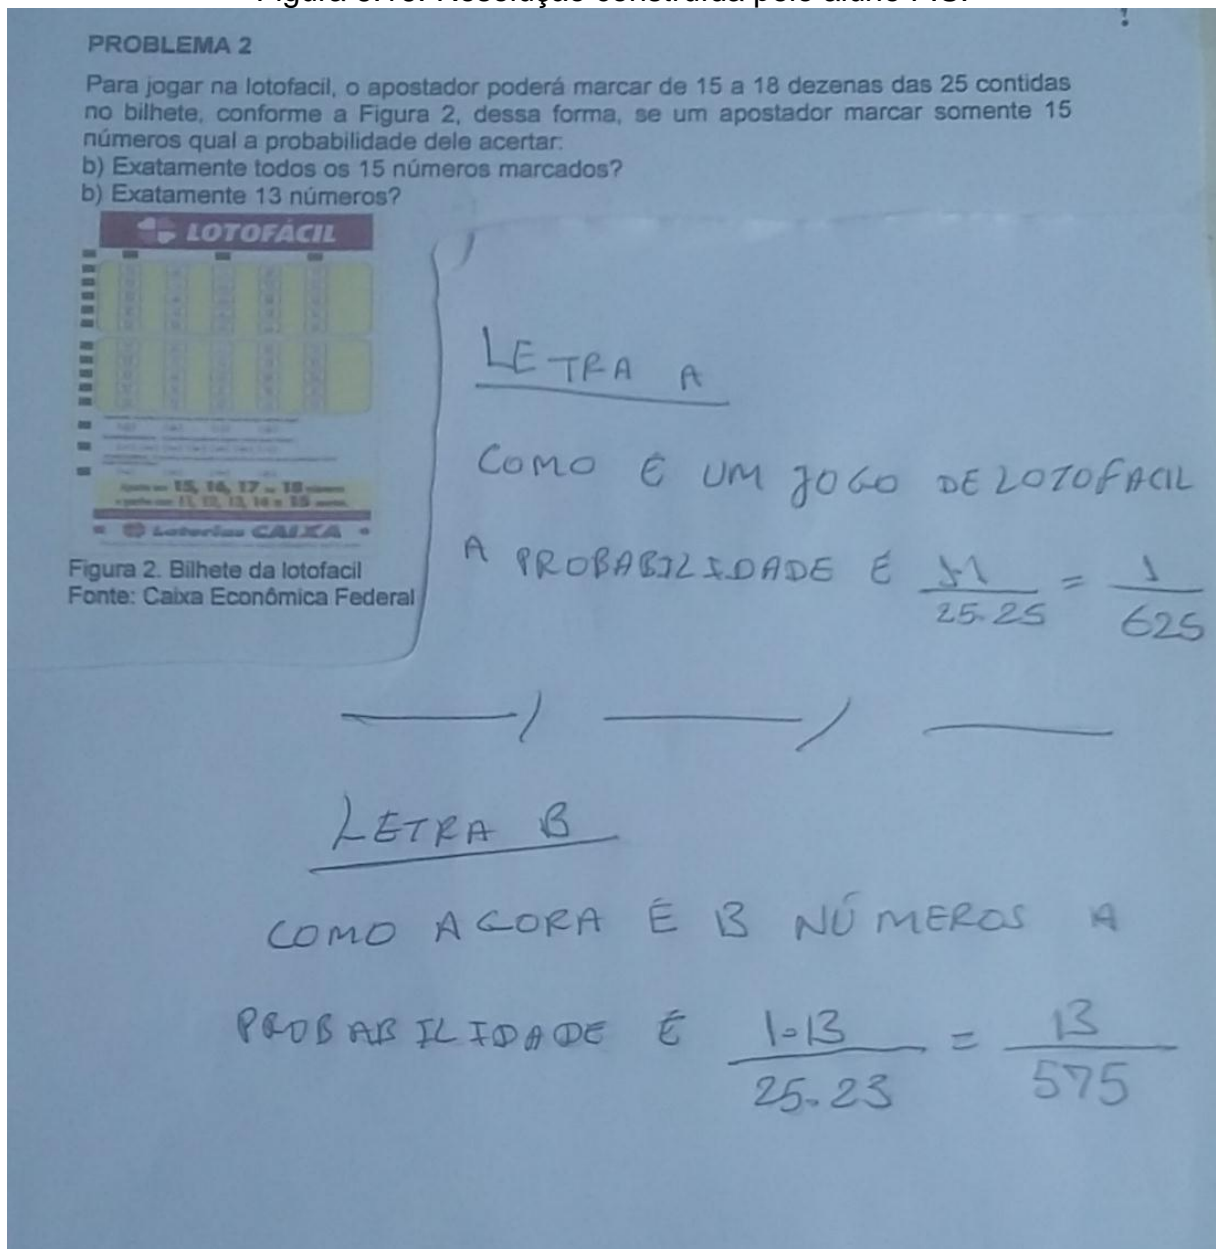 PROBLEMA 2
Para jogar na lotofacil, o apostador poderá marcar de 15 a 18 dezenas das 25 contidas
no bilhete, conforme a Figura 2, dessa forma, se um apostador marcar somente 15
números qual a probabilidade dele acertar:
b) Exatamente todos os 15 números marcados?
b) Exatamente 13 números?
LOTOFÁCIL
15, 16, 17 18
11, 12, 13, 14 15
Loterias CAIXA
Figura 2. Bilhete da lotofacil
Fonte: Caixa Econômica Federal
LETRA A
COMO É UM JOGO DE LOTOFACIL
A PROBABILIDADE É 1.1/25.25 = 1/625
LETRA B
COMO AGORA É 13 NÚMEROS A
PROBABILIDADE É 1.13/25.23 = 13/575